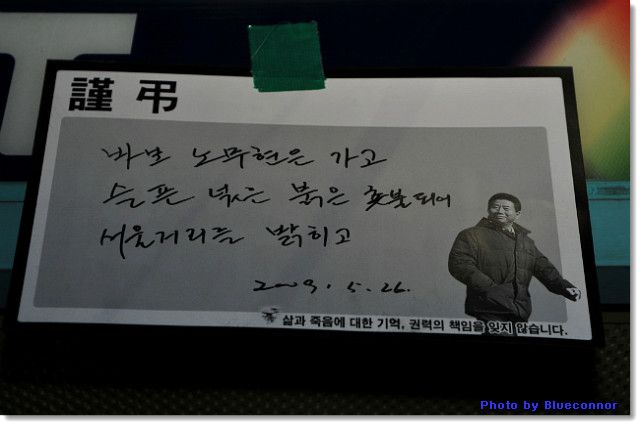 謹 弔
바보 노무현은 가고
슬픈 넋은 붉은 촛불되어
서울거리를 밝히고
2009. 5. 26.
삶과 죽음에 대한 기억, 권력의 책임을 잊지 않습니다.
Photo by Blueconnor